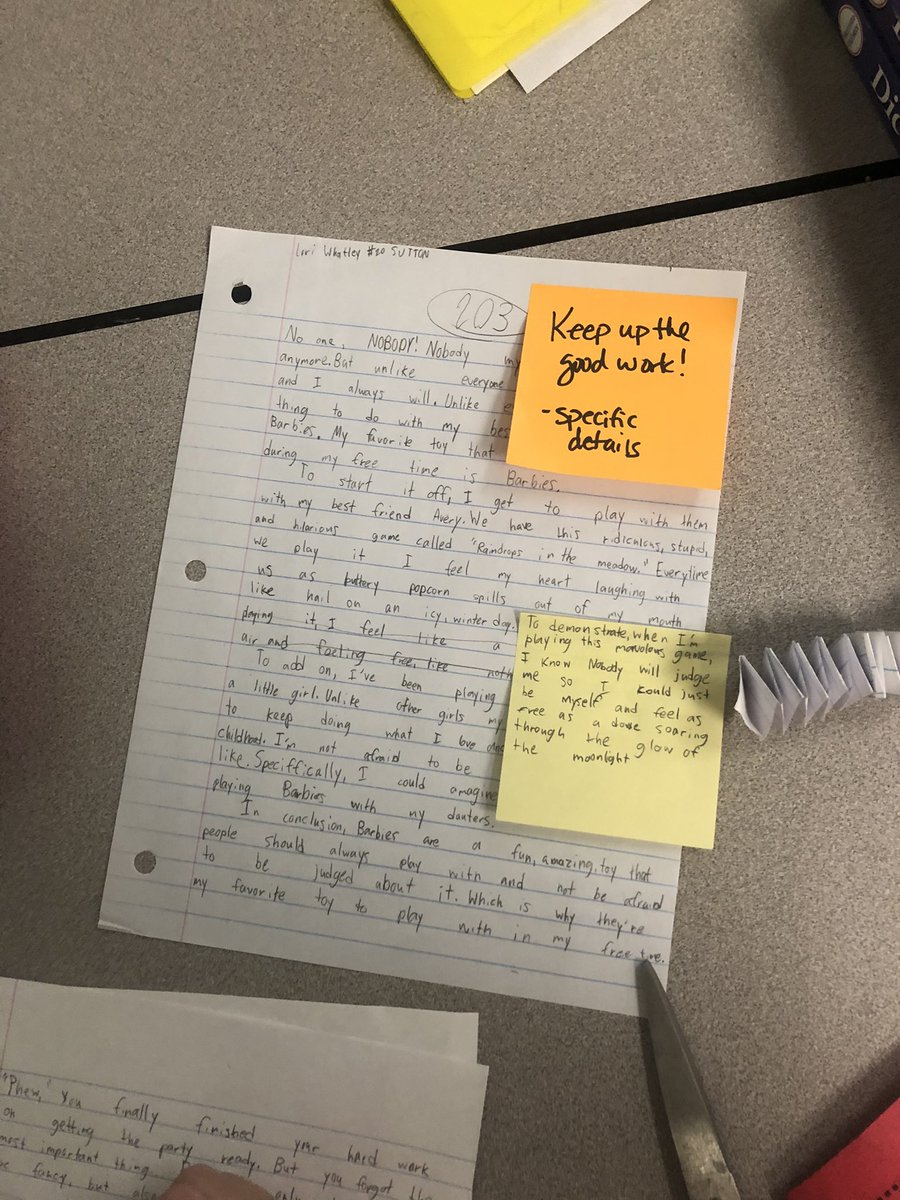 Lori Whatley #20 SUTTON
203
No one, NOBODY! Nobody my
anymore. But unlike everyone
and I always will. Unlike
thing to do with my bes
Barbies. My favorite toy that
during my free time is Barbies.
To start it off, I get to play with them
with my best friend Avery. We have this ridiculous, stupid,
and hilarious game called "Raindrops in the meadow." Everytime
we play it I feel my heart laughing with
us as buttery popcorn spills out of my mouth
like hail on an icy, winter day.
playing it, I feel like a
air and feeling free, like noth
To add on, I've been playing
a little girl. Unlike other girls my
to keep doing what I love and
childhood. I'm not afraid to be
like. Speciffically, I could amagine
playing Barbies with my dauters.
In conclusion, Barbies are a fun, amazing, toy that
people should always play with and not be afraid
to be judged about it. Which is why they're
my favorite toy to play with in my free
Keep up the
good work!
- specific
details
To demonstrate, when I'm
playing this marvolous game,
I know Nobody will judge
me so I kould just
be myself and feel as
free as a dove soaring
through the glow of
the moonlight
"Phew," you finally finished your hard work
on getting the party ready. But you forgot the
most important thing.
fancy, but
Dic